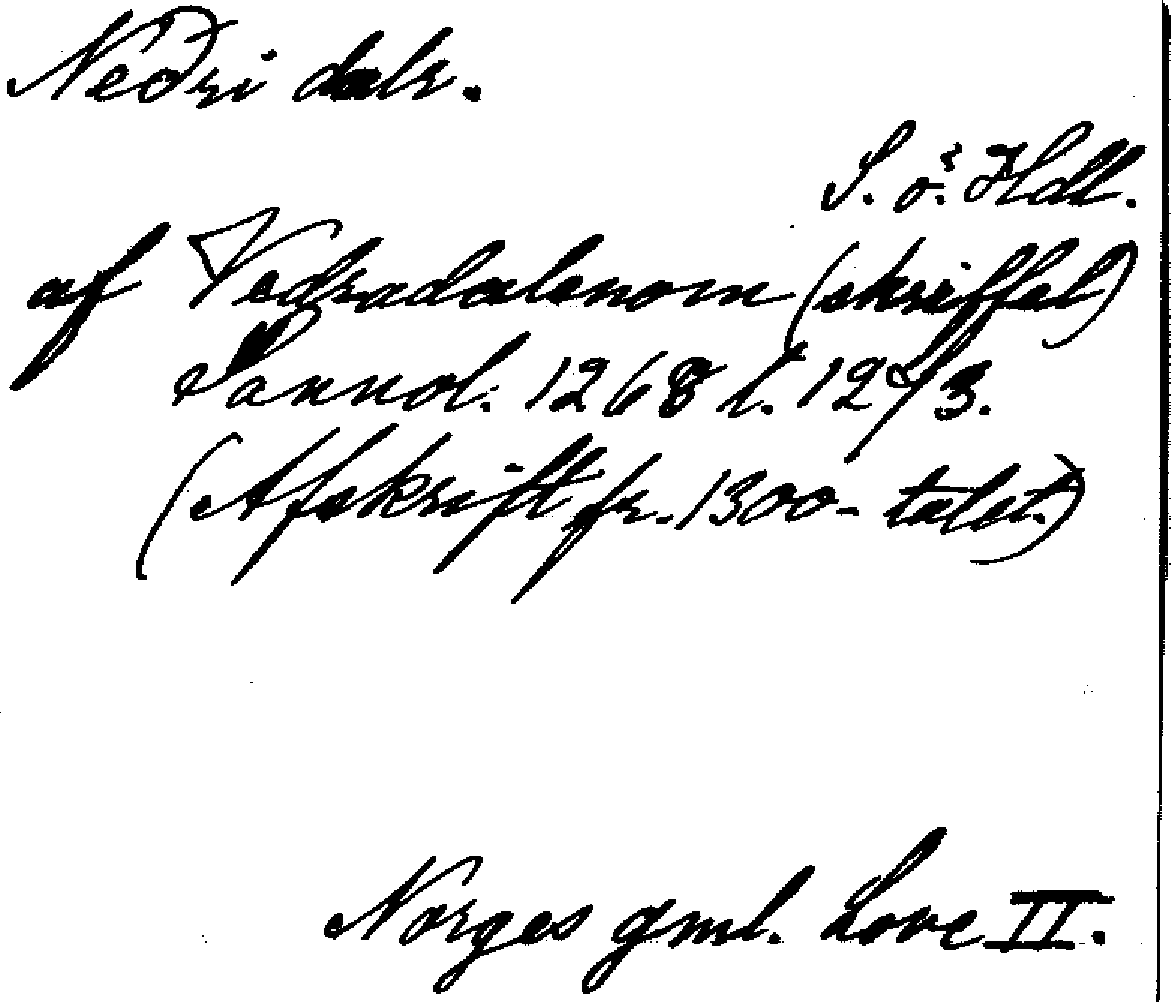 Neðri dalr.
S. o. Hdl.
af Vedradalenom (skriffel)
Sannol. 1268 l. 1273.
(Afskrift fr. 1300-talet.)
Norges gml. Love II.